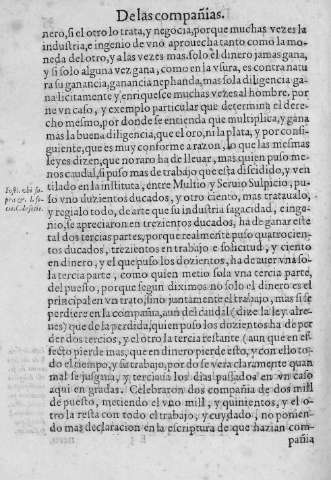 De las compañias.
nero, si el otro lo trata, y negocia, porque muchas vezes la
industria, e ingenio de vno aprouecha tanto como la mo-
neda del otro, y a las vezes mas. solo el dinero jamas gana,
y si solo alguna vez gana, como en la vsura, es contra natu
ra su ganancia, ganancia nephanda, mas sola diligencia ga-
na licitamente y enriquesce muchas vezes al hombre, por
ne vn caso, y exemplo particular que determina el dere-
cho mesmo, por donde se entienda que multiplica, y gana
mas la buena diligencia, que el oro, ni la plata, y por consi-
guiente, que es muy conforme a razon, lo que las mesmas
leyes dizen, que no raro ha de lleuar, mas quien puso me-
nos caudal, si puso mas de trabajo que esta discidido, y ven
tilado en la instituta, entre Multio y Seruio Sulpicio, pu-
so vno duzientos ducados, y otro ciento, mas trataualo,
y regialo todo, de arte que su industria sagacidad, e inge-
nio, se apreciaron en trezientos ducados, ha de ganar este
tal dos tercias partes, porque realmente puso quatrocien-
tos ducados, trezientos en trabajo e solicitud, y ciento
en dinero, y el que puso los dozientos, ha de auer vna so-
la tercia parte, como quien metio sola vna tercia parte,
del puesto, porque segun diximos no solo el dinero es el
principal en vn trato, sino juntamente el trabajo, mas si se
perdiere en la compañia, aun del caudal (dize la ley. alre-
ues) que de la perdida, quien puso los dozientos ha de per
der dos tercios, y el otro la tercia restante (aun que en ef-
fecto pierde mas, que en dinero pierde esto, y con ello to-
do el tiempo, y su trabajo, por do se vera claramente quan
mal se jusgana, y terciaua los dias passados en vn caso
aqui en gradas. Celebraron dos compañia de dos mill
de puesto, metiendo el vno mill, y quinientos, y el o-
tro la resta con todo el trabajo, y cuydado, no ponien-
do mas declaracion en la escriptura de que hazian com-
pañia